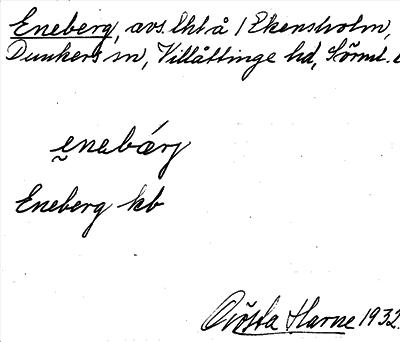 Eneberg, avs. lht å / Ekensholm,
Dunkers sn, Villåttinge hd, Sörml.
enebárj
Eneberg kb
Gösta Harne 1932.